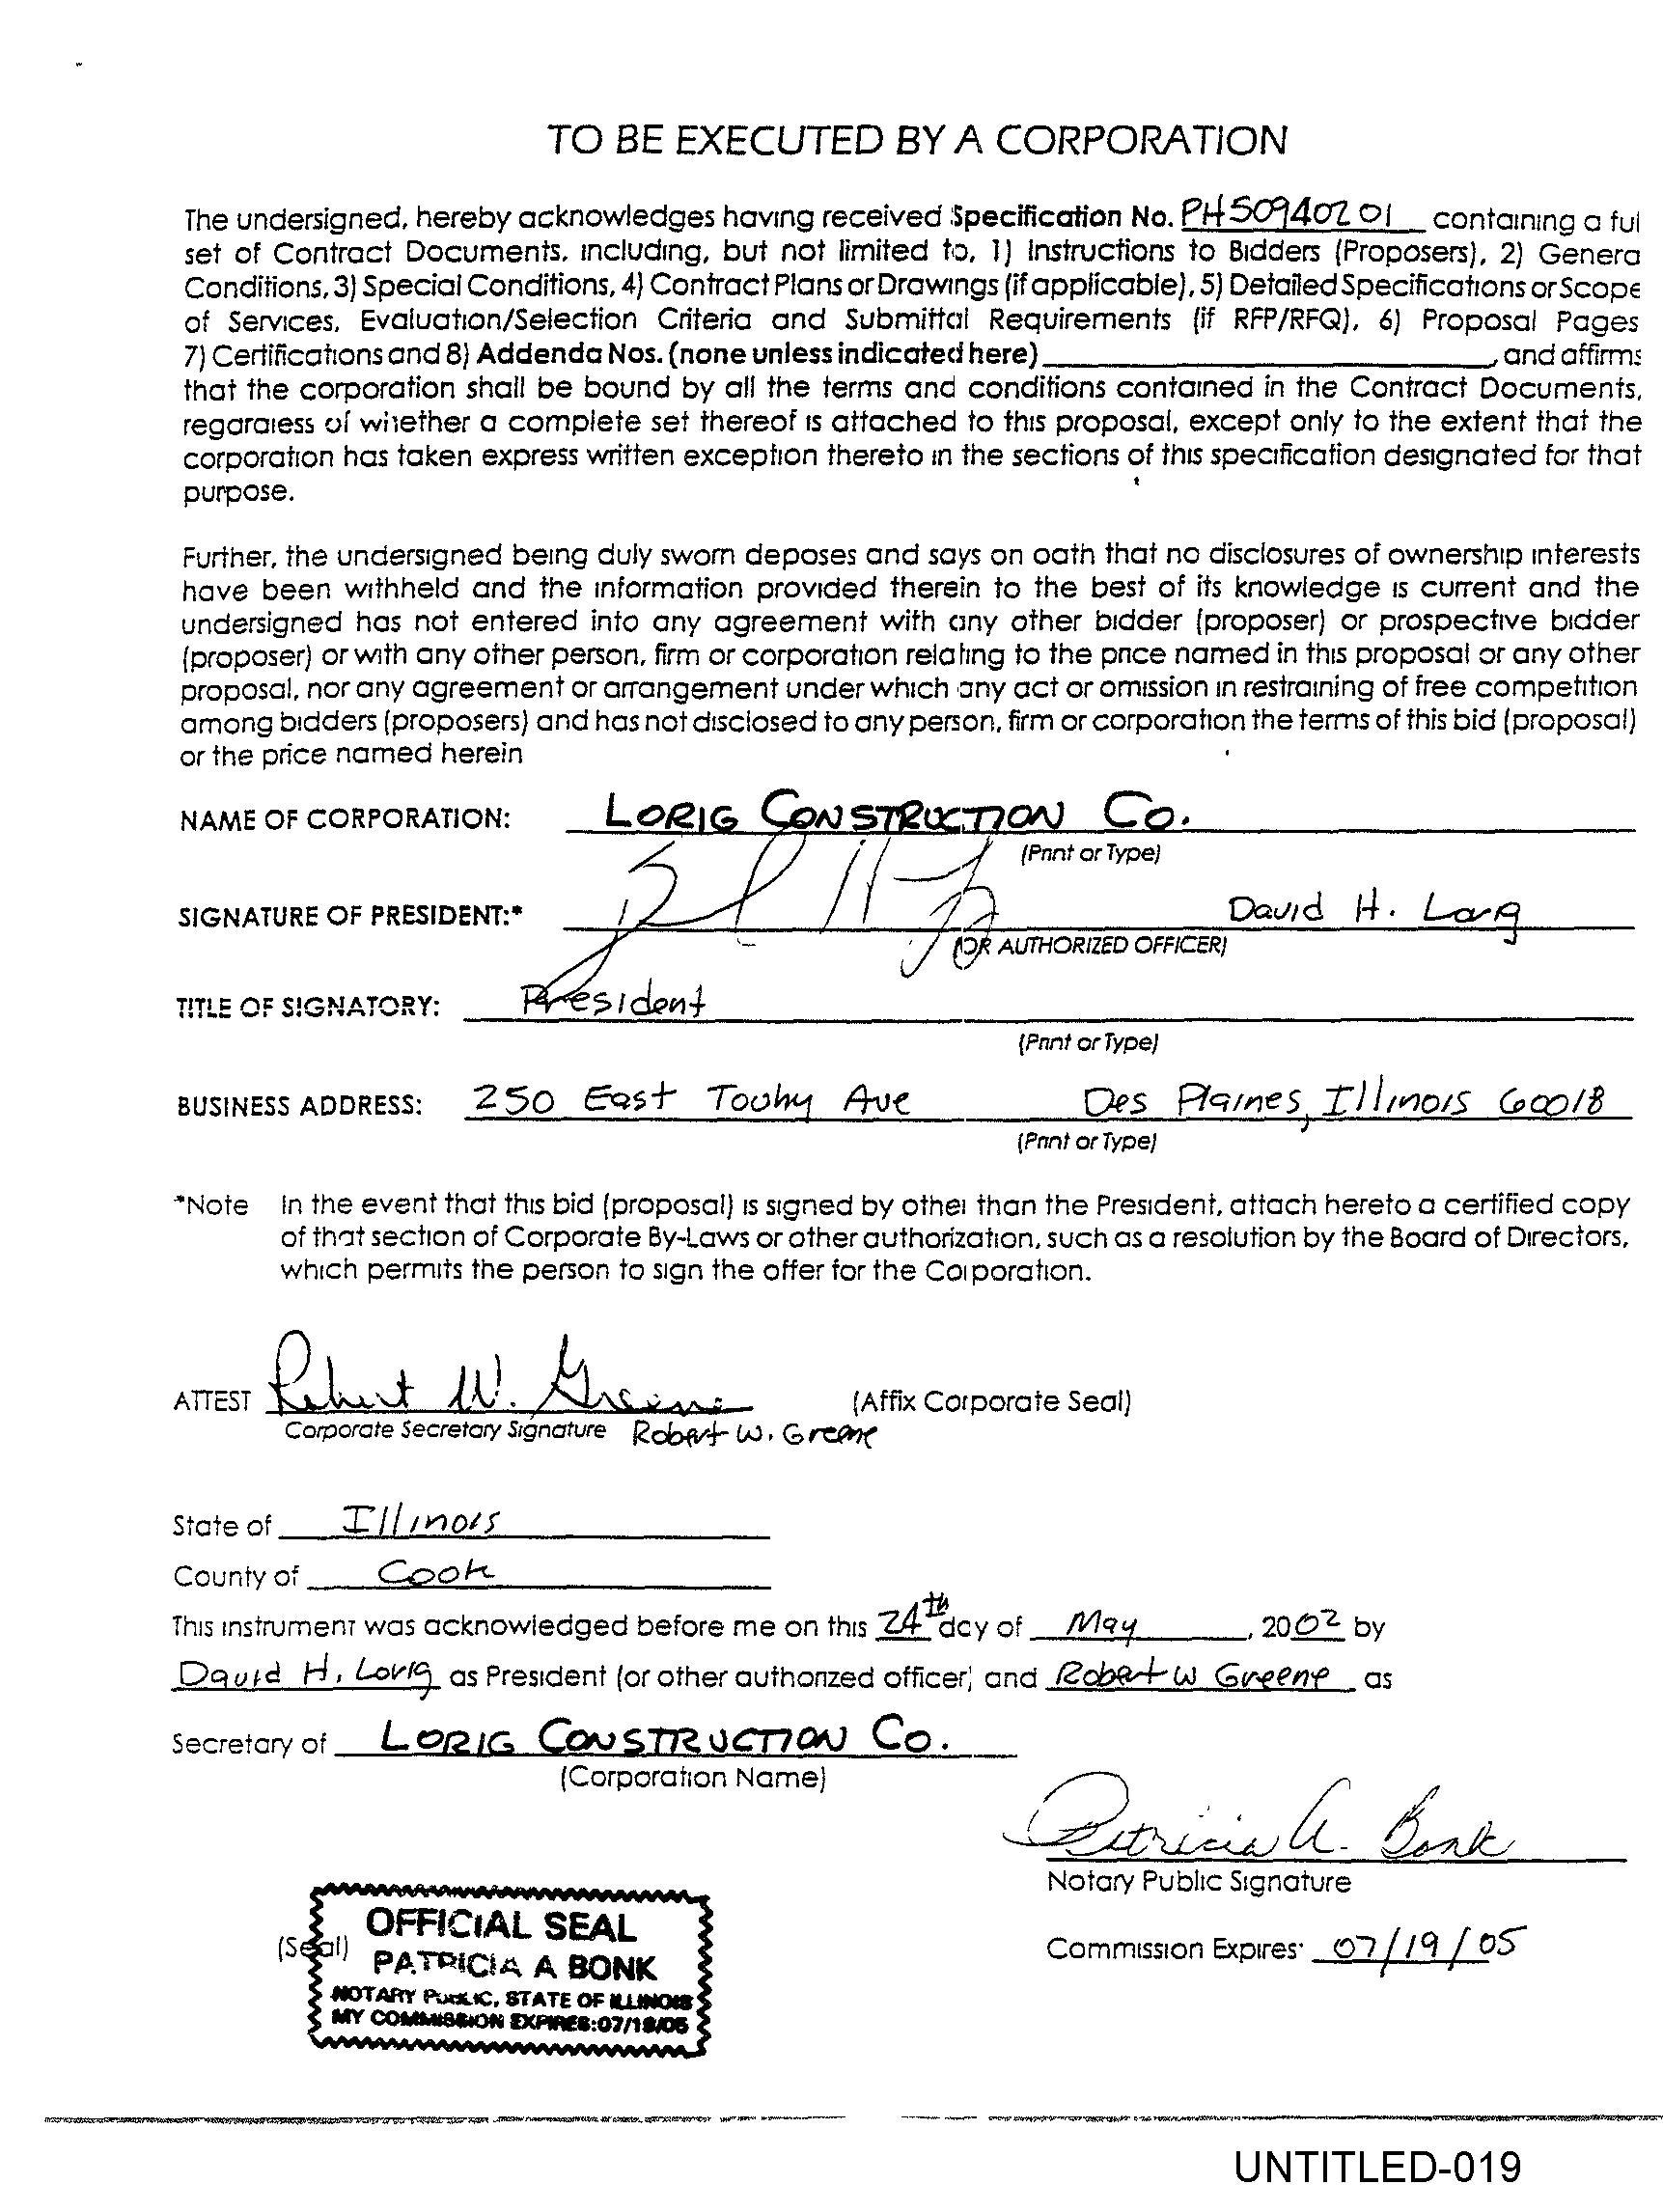 TO BE EXECUTED BY A CORPORATION
The undersigned, hereby acknowledges having received Specification No. PHS0940201 containing a ful
set of Contract Documents, including, but not limited to, 1) Instructions to Bidders (Proposers), 2) Genera
Conditions, 3) Special Conditions, 4) Contract Plans or Drawings (if applicable), 5) Detailed Specifications or Scope
of Services, Evaluation/Selection Criteria and Submittal Requirements (if RFP/RFQ), 6) Proposal Pages
7) Certifications and 8) Addenda Nos. (none unless indicated here)____, and affirms
that the corporation shall be bound by all the terms and conditions contained in the Contract Documents,
regardless of whether a complete set thereof is attached to this proposal, except only to the extent that the
corporation has taken express written exception thereto in the sections of this specification designated for that
purpose.
Further, the undersigned being duly sworn deposes and says on oath that no disclosures of ownership interests
have been withheld and the information provided therein to the best of its knowledge is current and the
undersigned has not entered into any agreement with any other bidder (proposer) or prospective bidder
(proposer) or with any other person, firm or corporation relating to the price named in this proposal or any other
proposal, nor any agreement or arrangement under which any act or omission in restraining of free competition
among bidders (proposers) and has not disclosed to any person, firm or corporation the terms of this bid (proposal)
or the price named herein
NAME OF CORPORATION: LORIG CONSTRUCTION CO.
(Print or Type)
SIGNATURE OF PRESIDENT:* David H. Lorig
(OR AUTHORIZED OFFICER)
TITLE OF SIGNATORY: President
(Print or Type)
BUSINESS ADDRESS: 250 East Touhy Ave Des Plaines, Illinois 60018
(Print or Type)
*Note In the event that this bid (proposal) is signed by other than the President, attach hereto a certified copy
of that section of Corporate By-Laws or other authorization, such as a resolution by the Board of Directors,
which permits the person to sign the offer for the Corporation.
ATTEST Robert W. Greene (Affix Corporate Seal)
Corporate Secretary Signature Robert W. Greene
State of Illinois
County of Cook
This instrument was acknowledged before me on this 24th day of May, 2002 by
David H. Lorig as President (or other authorized officer) and Robert W Greene as
Secretary of LORIG CONSTRUCTION CO.
(Corporation Name)
Patricia A. Bonk
Notary Public Signature
Commission Expires: 07/19/05
(Seal)
OFFICIAL SEAL
PATRICIA A BONK
NOTARY PUBLIC, STATE OF ILLINOIS
MY COMMISSION EXPIRES:07/19/05
UNTITLED-019